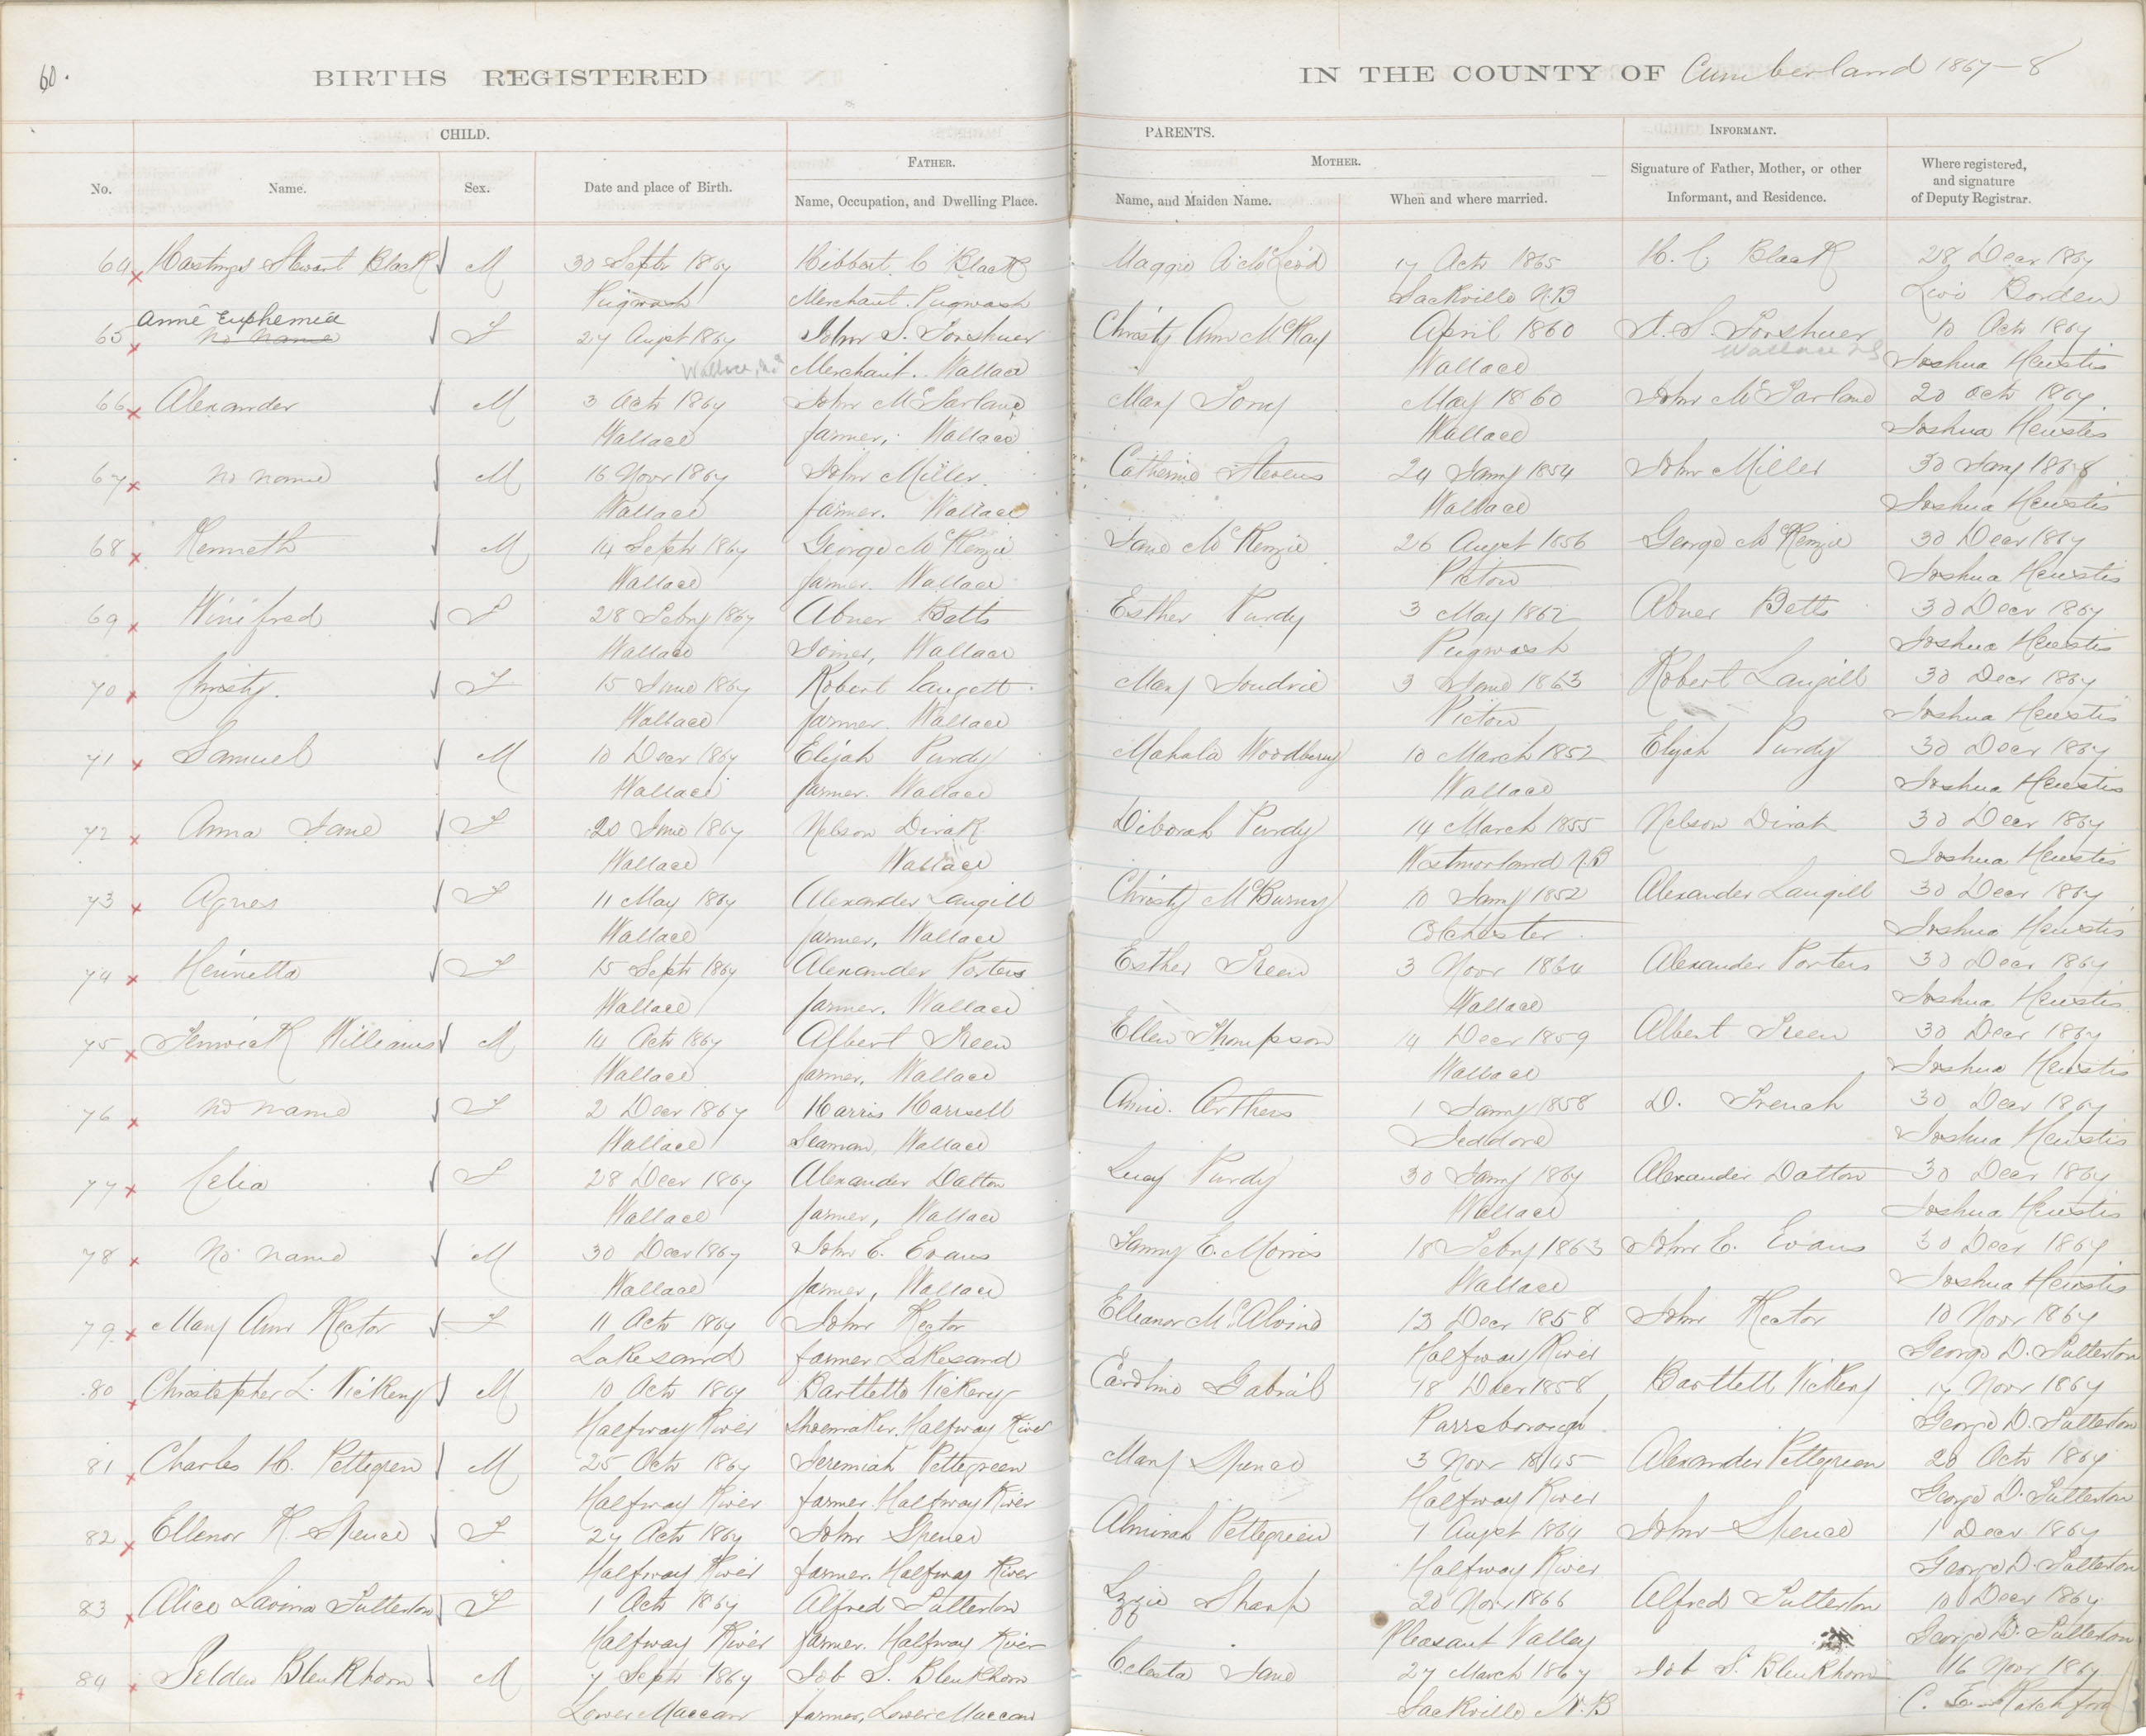 60.
BIRTHS REGISTERED IN THE COUNTY OF Cumberland 1867-8
CHILD. PARENTS. INFORMANT.
FATHER. MOTHER.
No. Name. Sex. Date and place of Birth. Name, Occupation, and Dwelling Place. Name, and Maiden Name. When and where married. Signature of Father, Mother, or other Informant, and Residence. Where registered, and signature of Deputy Registrar.
64 Hastings Stewart Black M 30 Septr 1867 Hibbert C Black Maggie A McLeod 17 Octr 1865 H. C Black 28 Decr 1867
Pugwash Merchant. Pugwash Sackville N.B Levi Borden
Anne Euphemia
65 no name F 27 Augst 1867 John S. Forshner Christy Ann McKay April 1860 J. S. Forshner 10 Octr 1867
Wallace, Merchant. Wallace Wallace Wallace Joshua Heustis
66 Alexander M 3 Octr 1867 John McFarland Mary May 1860 John McFarland 20 Octr 1867
Wallace farmer, Wallace Wallace Joshua Heustis
67 no name M 16 Novr 1867 John Miller. Catherine Stevens 24 Jany 1854 John Miller 30 Jany 1868
Wallace farmer. Wallace Wallace Joshua Heustis
68 Kenneth M 14 Septr 1867 George McKenzie Jane McKenzie 26 Augst 1856 George McKenzie 30 Decr 1867
Wallace farmer. Wallace Pictou Joshua Heustis
69 Winifred F 28 Feby 1867 Abner Betts Esther Purdy 3 May 1862 Abner Betts 30 Decr 1867
Wallace Joiner, Wallace Pugwash Joshua Heustis
70 Christy. F 15 June 1867 Robert Langell Mary 3 June 1863 Robert Langill 30 Decr 1867
Wallace farmer. Wallace Pictou Joshua Heustis
71 Samuel M 10 Decr 1867 Elijah Purdy Mahala Woodbury 10 March 1852 Elijah Purdy 30 Decr 1867
Wallace farmer. Wallace Wallace Joshua Heustis
72 Anna Jane F 20 June 1867 Nelson Dirak Deborah Purdy 14 March 1855 Nelson Dirak 30 Decr 1867
Wallace Wallace Westmorland N.B Joshua Heustis
73 Agnes F 11 May 1867 Alexander Langill Christy McBurny 10 Jany 1852 Alexander Langill 30 Decr 1867
Wallace farmer, Wallace Colchester Joshua Heustis
74 Henrietta F 15 Septr 1867 Alexander Porters Esther Treen 3 Novr 1864 Alexander Porters 30 Decr 1867
Wallace farmer. Wallace Wallace Joshua Heustis
75 Fenwick Williams M 14 Octr 1867 Albert Treen Ellen Thompson 14 Decr 1859 Albert Treen 30 Decr 1867
Wallace farmer, Wallace Wallace Joshua Heustis
76 no name F 2 Decr 1867 Harris Annie. Arthurs 1 Jany 1858 D. French 30 Decr 1867
Wallace Seaman, Wallace Jeddore Joshua Heustis
77 Celia F 28 Decr 1867 Alexander Dalton Lucy Purdy 30 Jany 1867 Alexander Dalton 30 Decr 1867
Wallace farmer, Wallace Wallace Joshua Heustis
78 No name M 30 Decr 1867 John E. Evans Fanny E. Morris 18 Feby 1863 John E. Evans 30 Decr 1867
Wallace farmer, Wallace Wallace Joshua Heustis
79 Mary Ann Rector F 11 Octr 1867 John Rector Elleanor McAlvine 13 Decr 1858 John Rector 10 Novr 1867
Lakesand farmer Lakesand Halfway River George D. Fullerton
80 Christopher L. Vickery M 10 Octr 1867 Bartlette Vickery Caroline Gabriel 18 Decr 1858 Bartlett Vickery 17 Novr 1867
Halfway River Shoemaker. Halfway River Parrsborough George D. Fullerton
81 Charles H. Pettegreen M 25 Octr 1867 Jeremiah Pettegreen Mary Spence 3 Novr 1845 Alexander Pettegreen 20 Octr 1867
Halfway River farmer. Halfway River Halfway River George D. Fullerton
82 Ellenor R. Spence F 27 Octr 1867 John Spence Almirah Pettegreen 1 Augst 1864 John Spence 1 Decr 1867
Halfway River farmer. Halfway River Halfway River George D. Fullerton
83 Alice Lavinia Fullerton F 1 Octr 1867 Alfred Fullerton Lizzie Sharp 20 Novr 1866 Alfred Fullerton 10 Decr 1867
Halfway River farmer. Halfway River Pleasant Valley George D. Fullerton
84 Selden Blenkhorn M 7 Septr 1867 Job S. Blenkhorn Celesta Jane 27 March 1867 Job S. Blenkhorn 16 Novr 1867
Lower Maccan farmer, Lower Maccan Sackville N.B C. E. Ratchford